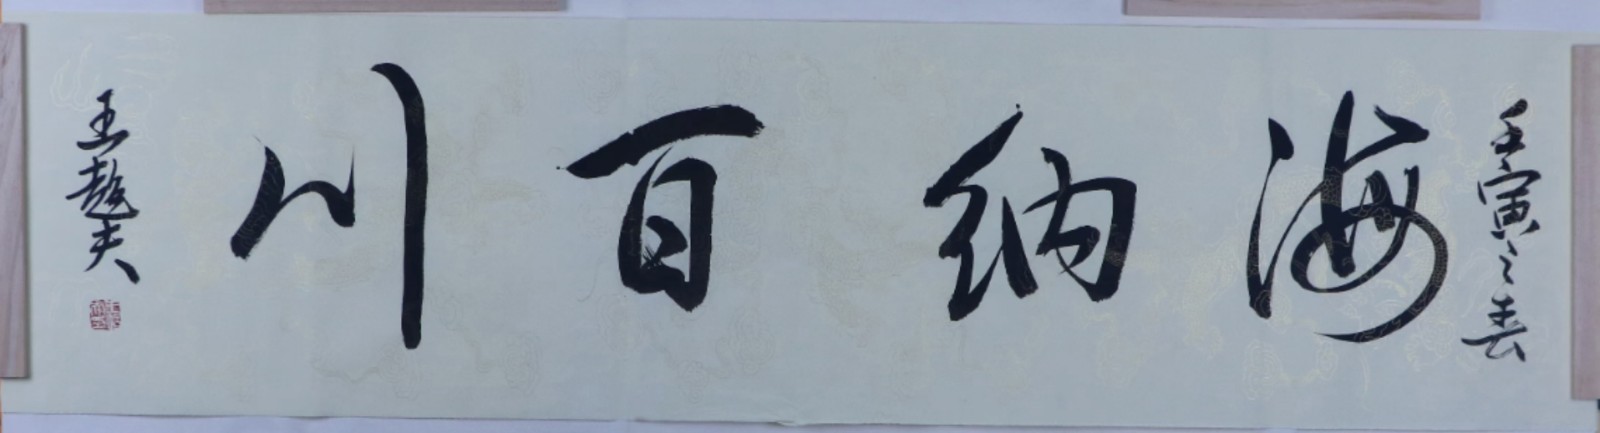 壬寅之春
海纳百川
王超夫